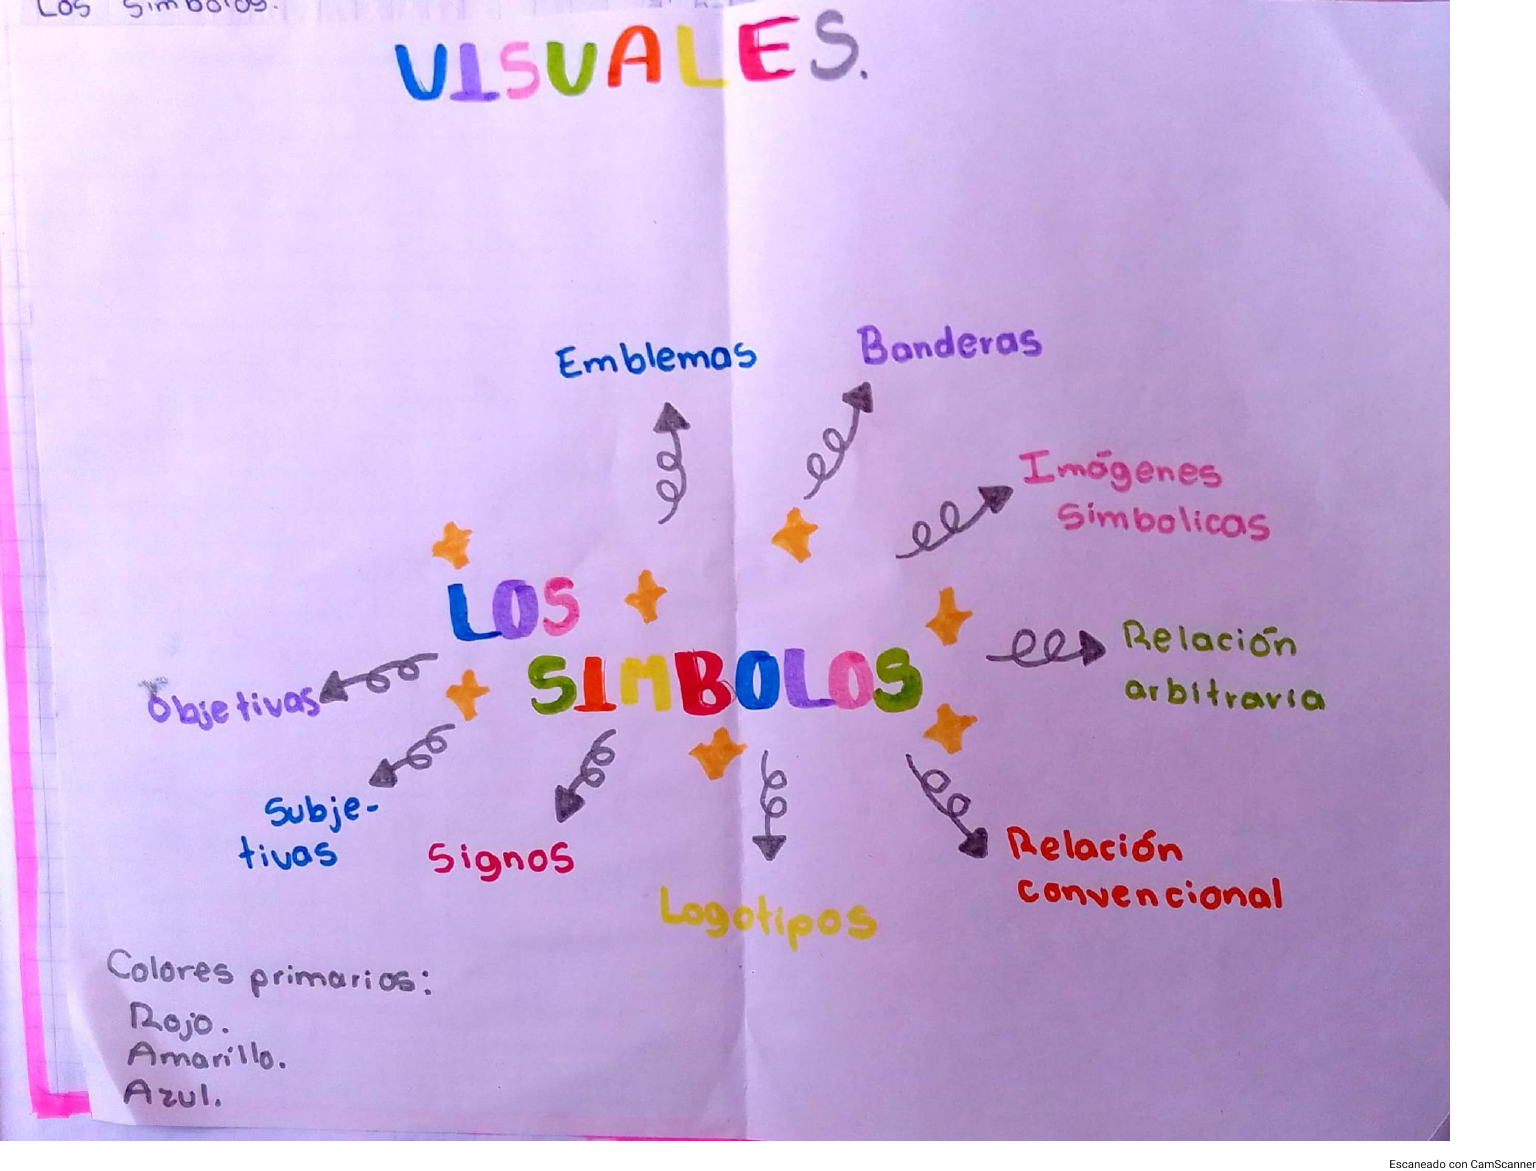 Los simbolos.
VISUALES.
Emblemas
Banderas
Imágenes
Simbolicas
LOS
SIMBOLOS
Relación
arbitraria
Objetivas
Subje-
tivas
Signos
Logotipos
Relación
convencional
Colores primarios:
Rojo.
Amarillo.
Azul.
Escaneado con CamScanner